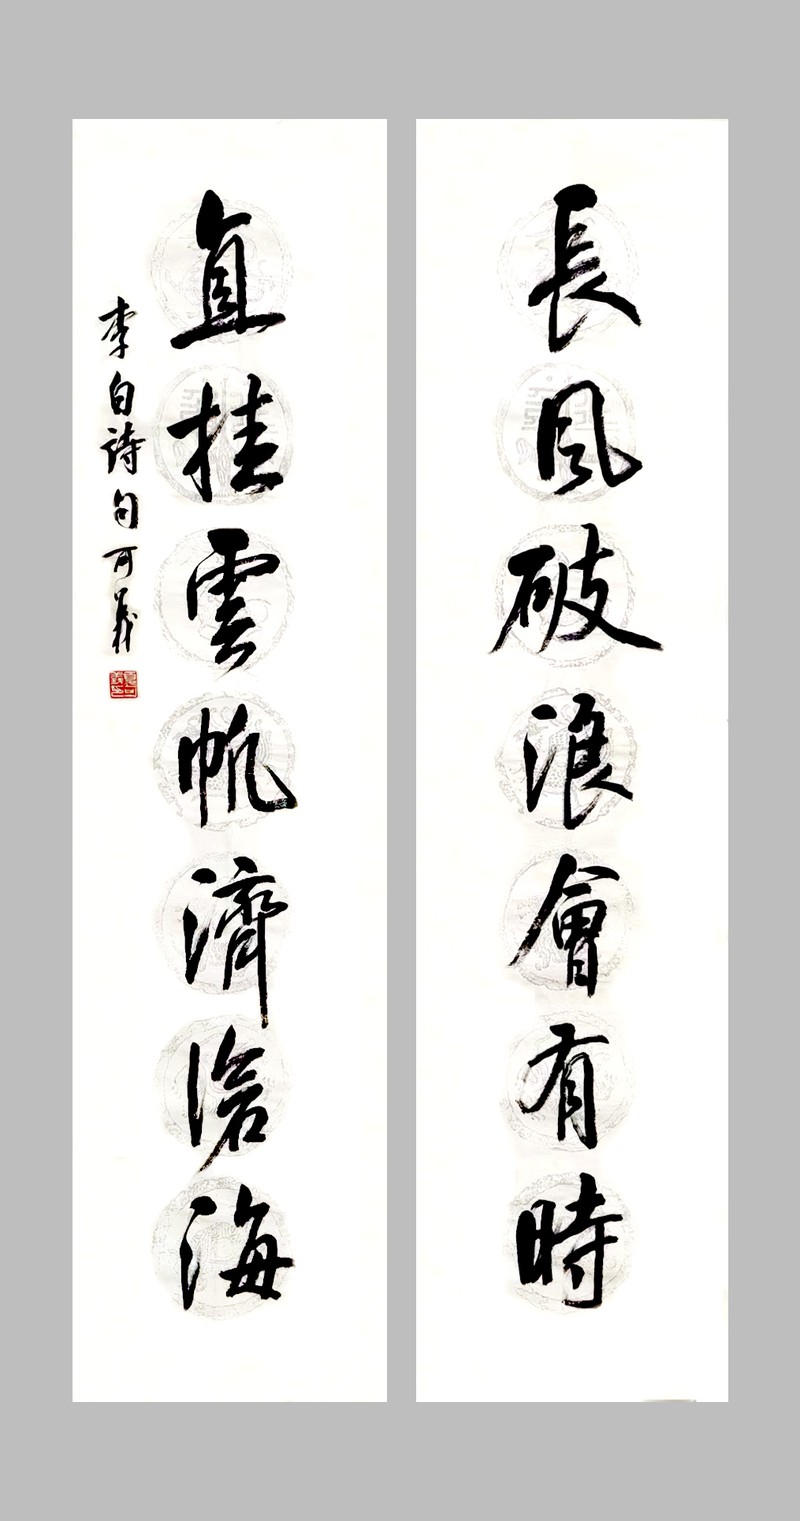 長風破浪會有時
直挂雲帆濟滄海
李白詩句可義